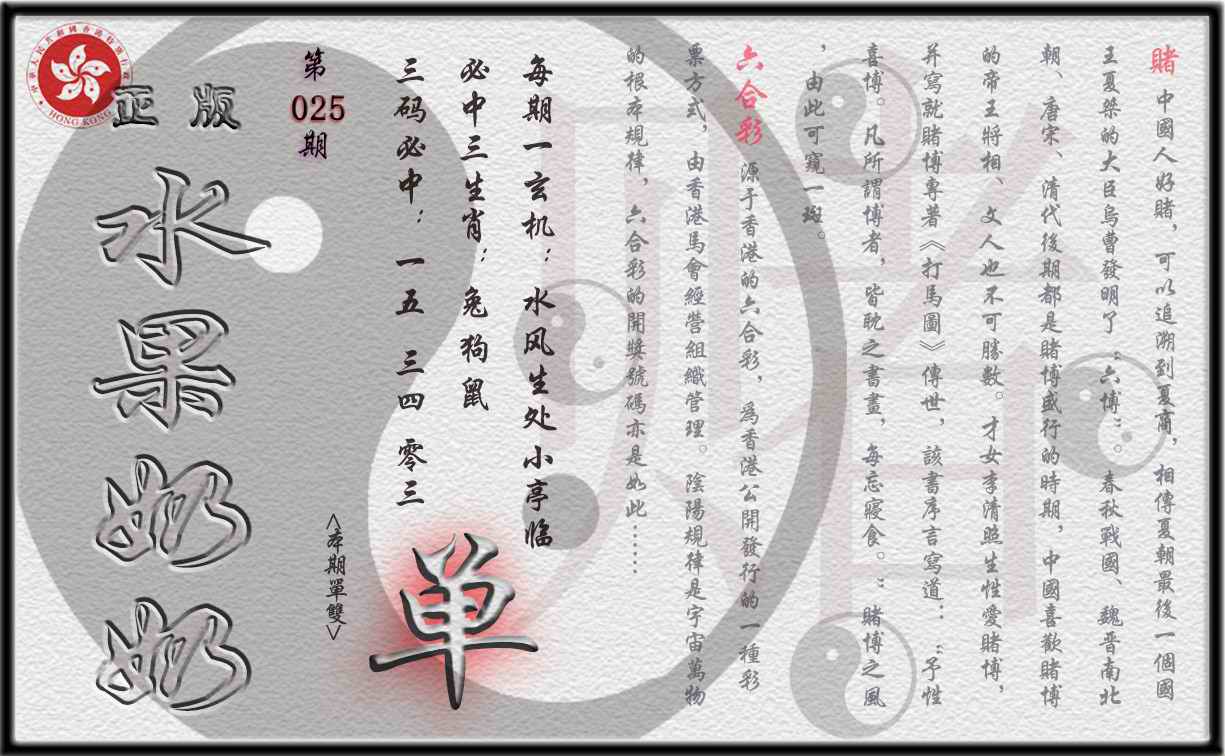 賭 中國人好賭，可以追溯到夏商，相傳夏朝最後一個國
王夏桀的大臣烏曹發明了“六博”。春秋戰國、魏晋南北
朝、唐宋、清代後期都是賭博盛行的時期，中國喜歡賭博
的帝王將相、文人也不可勝數。才女李清照生性愛賭博，
并寫就賭博專著《打馬圖》傳世，該書序言寫道：“予性
喜博。凡所謂博者，皆耽之書畫，每忘寢食。”賭博之風
，由此可窺一斑。
六合彩 源于香港的六合彩，爲香港公開發行的一種彩
票方式，由香港馬會經營組織管理。陰陽規律是宇宙萬物
的根本規律，六合彩的開獎號碼亦是如此……
每期一玄机：水风生处小亭临
必中三生肖：兔狗鼠
三码必中：一五 三四 零三
单
<本期單雙>
第
025
期
正版
水果奶奶
中華人民共和國香港特別行政區
HONG KONG